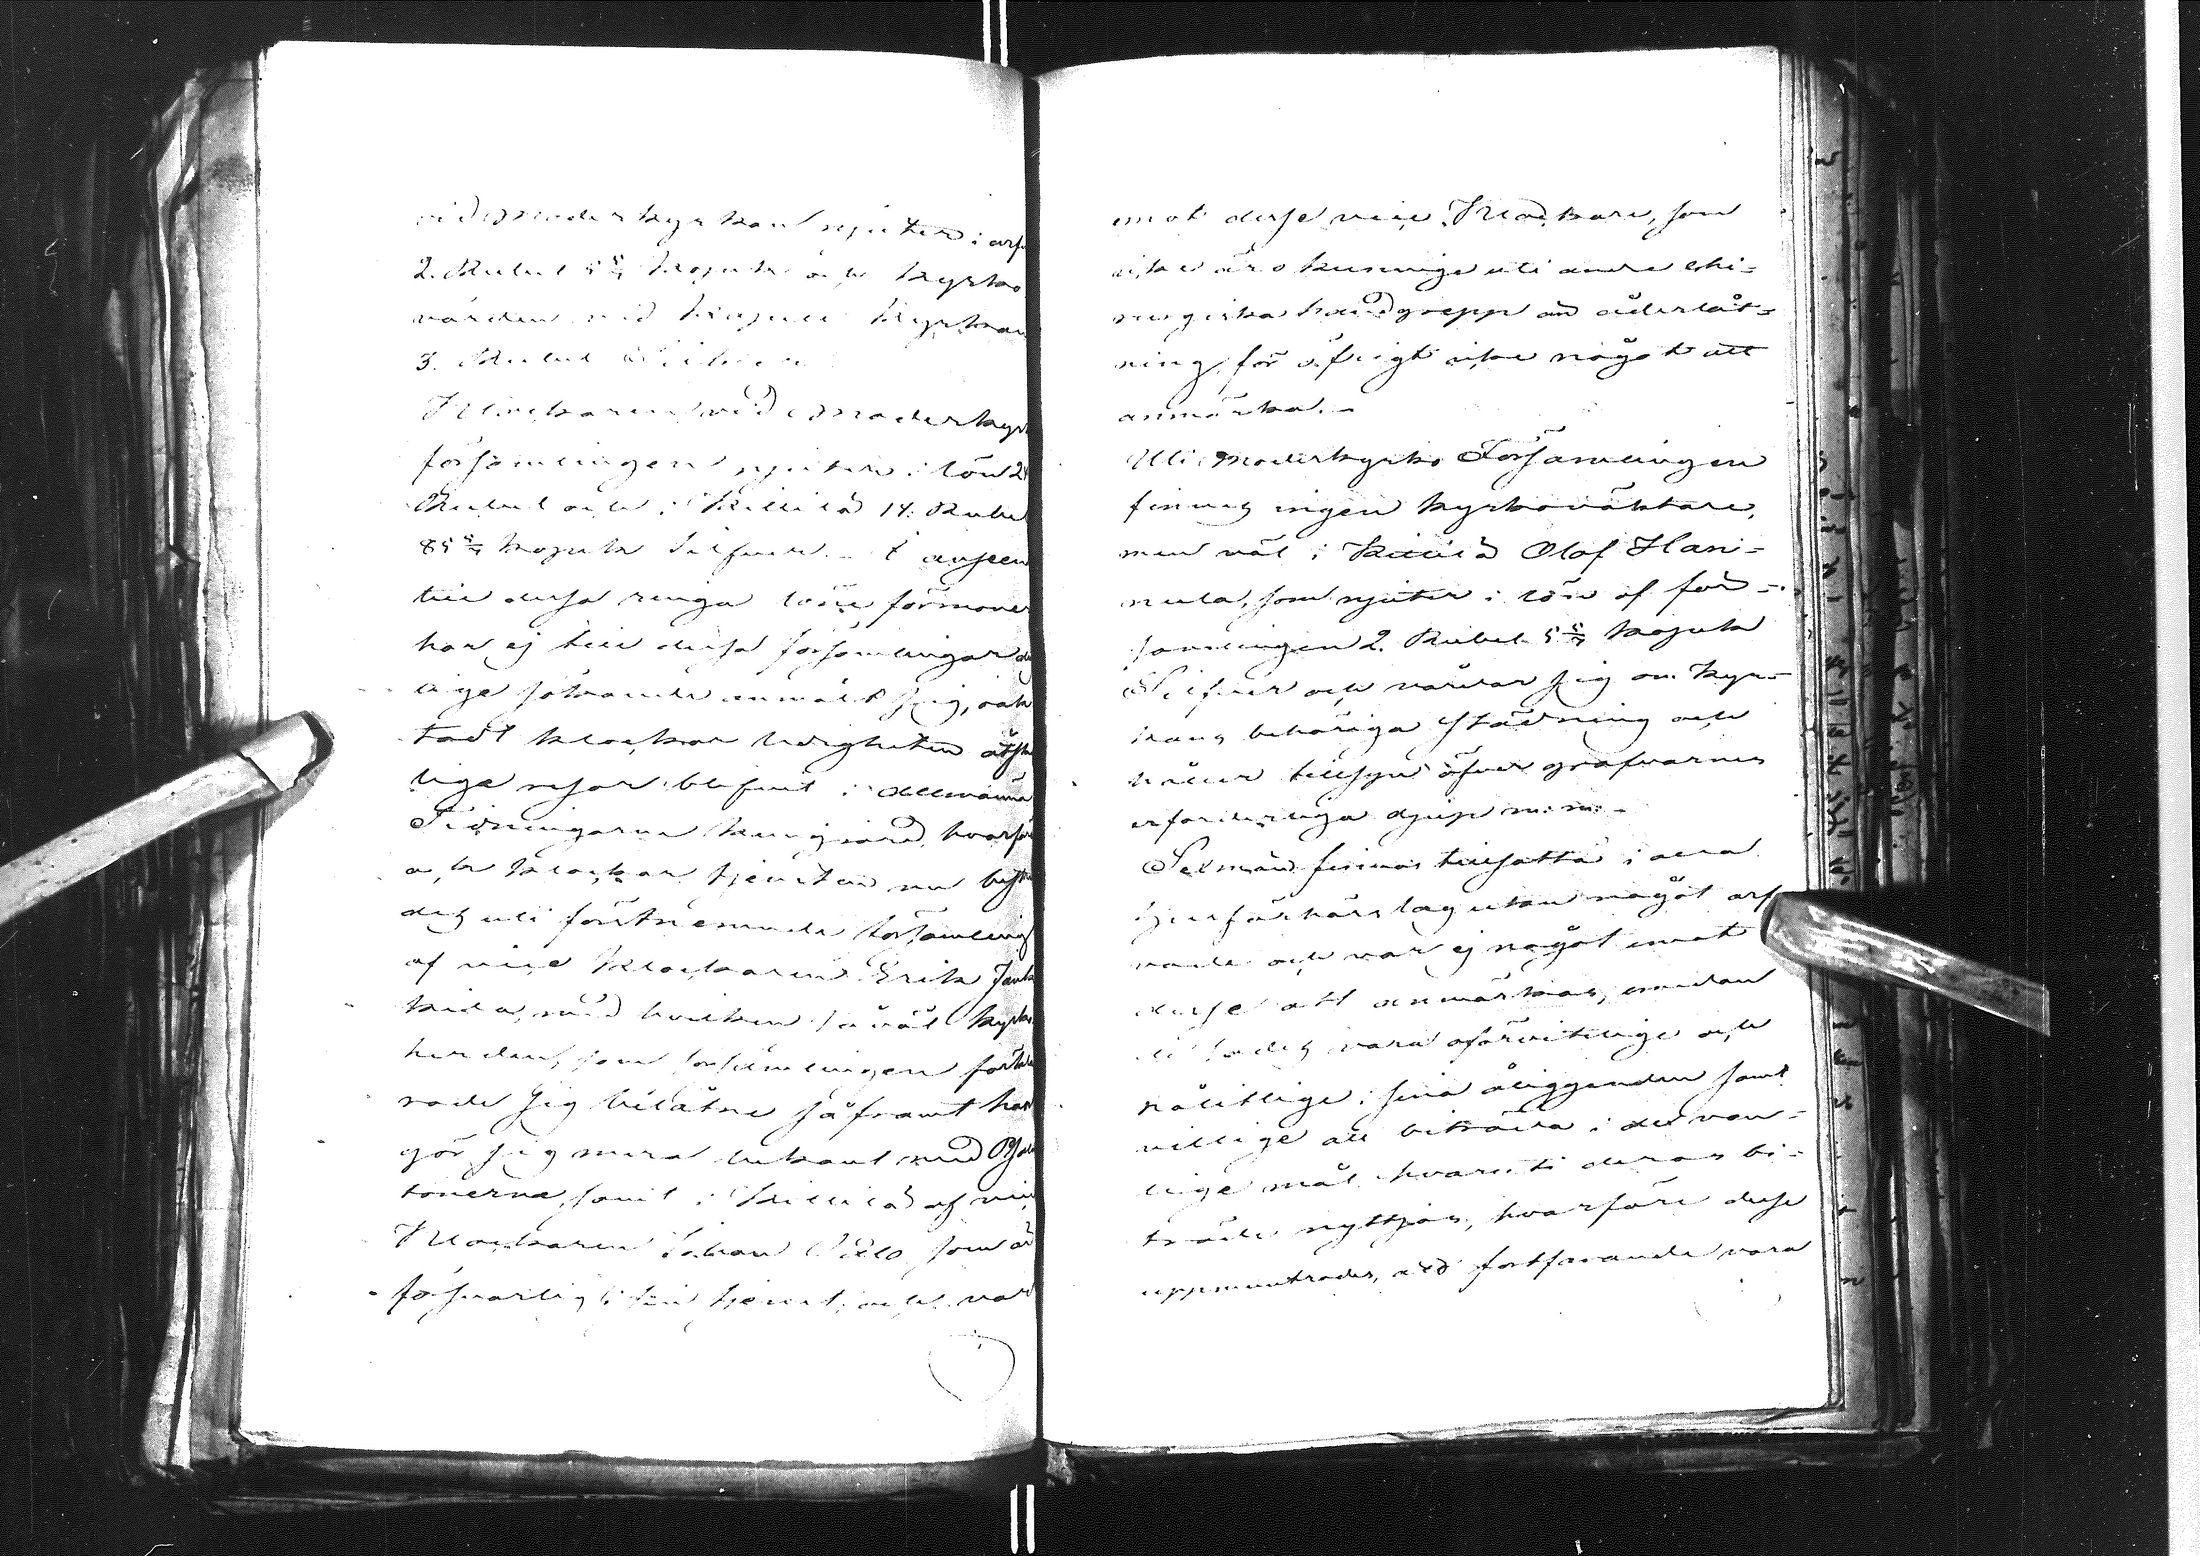 vid Moderkyrkan njuter i arf
2. Rubel 5 5/7 kopek och kyrko
värden vid kapell kyrkan
3. Rubel
Klockaren vid Moderkyrk
församlingen njuter i lön 2
Rubel och i Kiuilå 14. Rubel
85 5/7 kopek Silfver. I anseen
till dessa ringa löne förmoner
har ej till dessa församlingar
lige sökande anmält sig, oak
tadt klockar ledigheten åtski
lige resor blifvit i allmänna
Tidningarne kungjord, hvarför
och klockar tjensten nu bestri
des uti förstnemnde församling
af vice klockaren Erik Jank
kila, med hvilken så väl kyrko
herden, som församlingen förkla
rade sig belåtne såframt han
gör sig mera bekant med Psalm
tonerne, samt i Kiuilå af vice
Klockaren Johan som är
försvarlig i sin tjenst, och var
emot desse vice Klockare, som
icke äro kunnige uti andre chi=
rurgiska handgrepp än åderlåt=
ning, för öfrigt icke något att
anmärka. -
Uti Moderkyrko Församlingen
finnes ingen kyrkoväktare,
men väl i Kiuilå Olof Han=
nula, som njuter i lön af för=
samlingen 2. Rubel 5 5/7 kopek
Silfver och vårdar sig om kyr=
kans behöriga städning och
håller tillsyn öfver grafvarnes
erforderliga djup m: m: -
Sexmän finnas tillsatta i alla
utan något arf
vode och var ej något emot
desse att anmärkas, emedan
de sades vara oförvitelige och
nålitlige i sina åligganden samt
villige att biträda i de van=
lige mål hvaruti deras bi=
träde nyttjas, hvarföre desse
uppmuntrades, att fortfarande vara